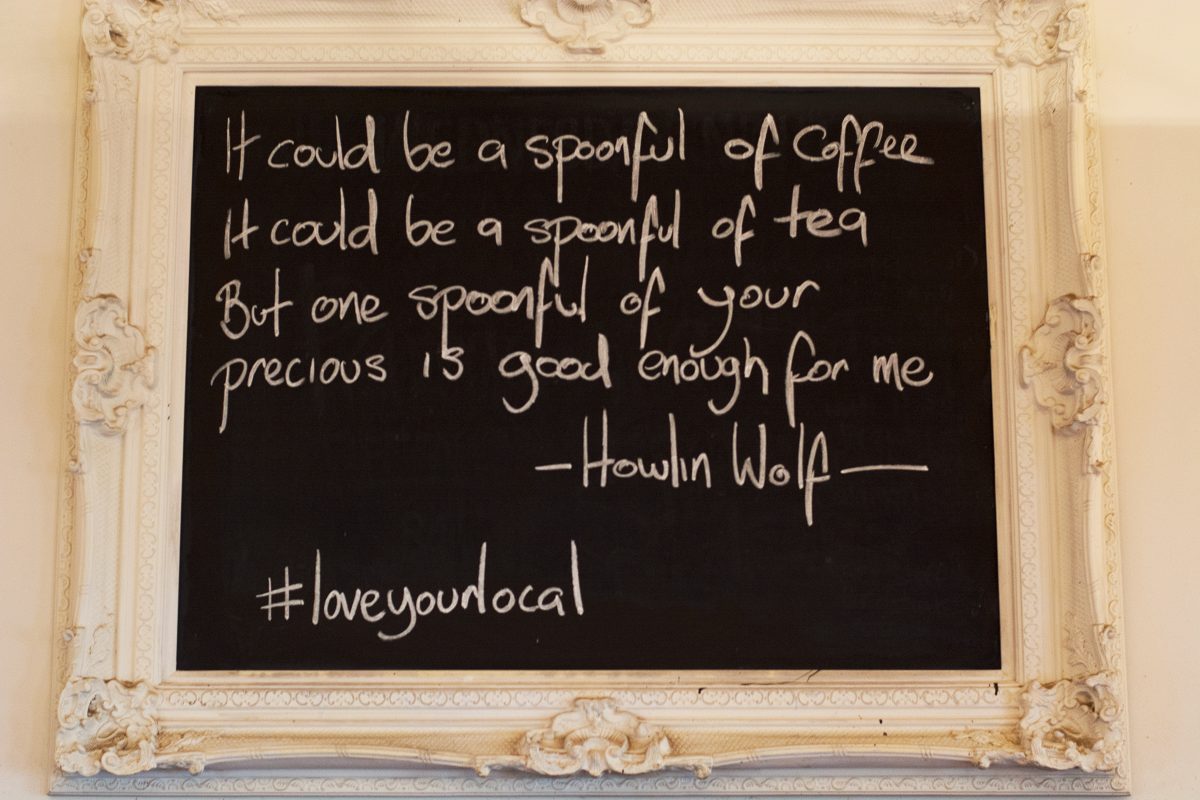 It could be a spoonful of Coffee
It could be a spoonful of tea
But one spoonful of your
precious is good enough for me
— Howlin Wolf —
#loveyourlocal